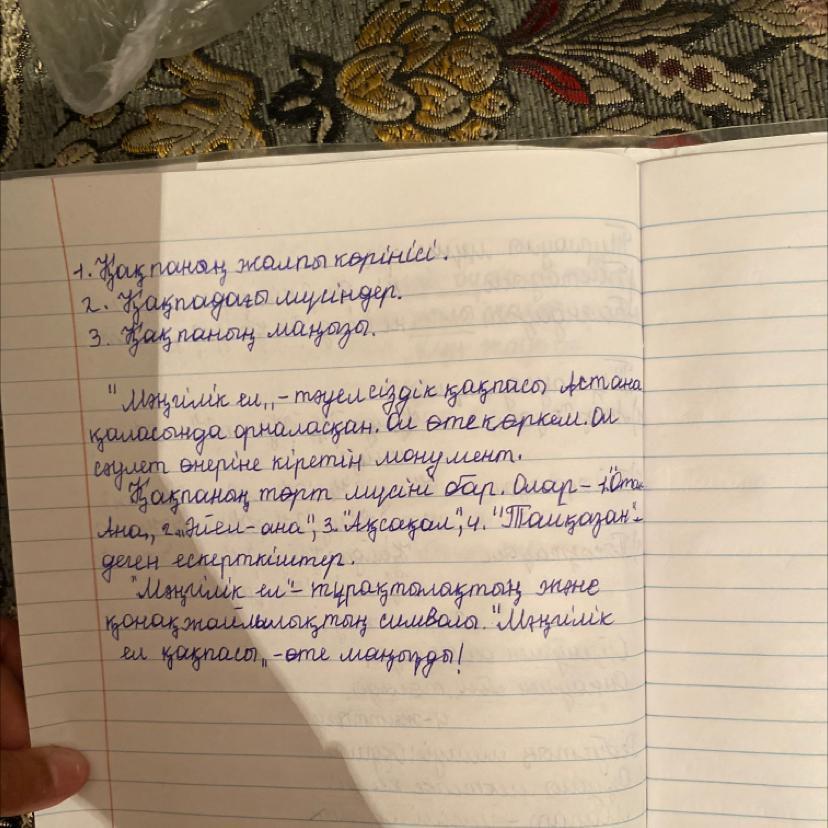 1. Қақпаның жалпы көрінісі.
2. Қақпадағы мүсіндер.
3. Қақпаның маңызы.
"Мәңгілік ел„ - тәуелсіздік қақпасы Астана
қаласында орналасқан. Ол өте көркем. Ол
сәулет өнеріне кіретін монумент.
Қақпаның төрт мүсіні бар. Олар - 1."Ота-
Ана„, 2."Әйел-ана", 3."Ақсақал", 4. "Тайқазан"-
деген ескерткіштер.
"Мәңгілік ел"- тұрақтылақтың және
қонақжайлылықтың символы. "Мәңгілік
ел қақпасы„ -өте маңызды!